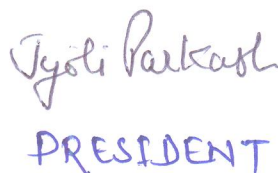 Jyoti Parkash
PRESIDENT